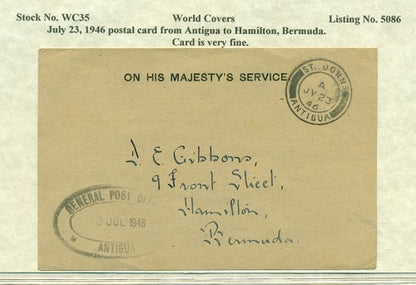 Stock No. WC35 World Covers Listing No. 5086
July 23, 1946 postal card from Antigua to Hamilton, Bermuda.
Card is very fine.
ON HIS MAJESTY'S SERVICE.
ST. JOHNS
A
JY 23
46
ANTIGUA
A. E. Gibbons,
9 Front Street,
Hamilton,
Bermuda.
GENERAL POST OFFICE
JUL 1946
ANTIGUA